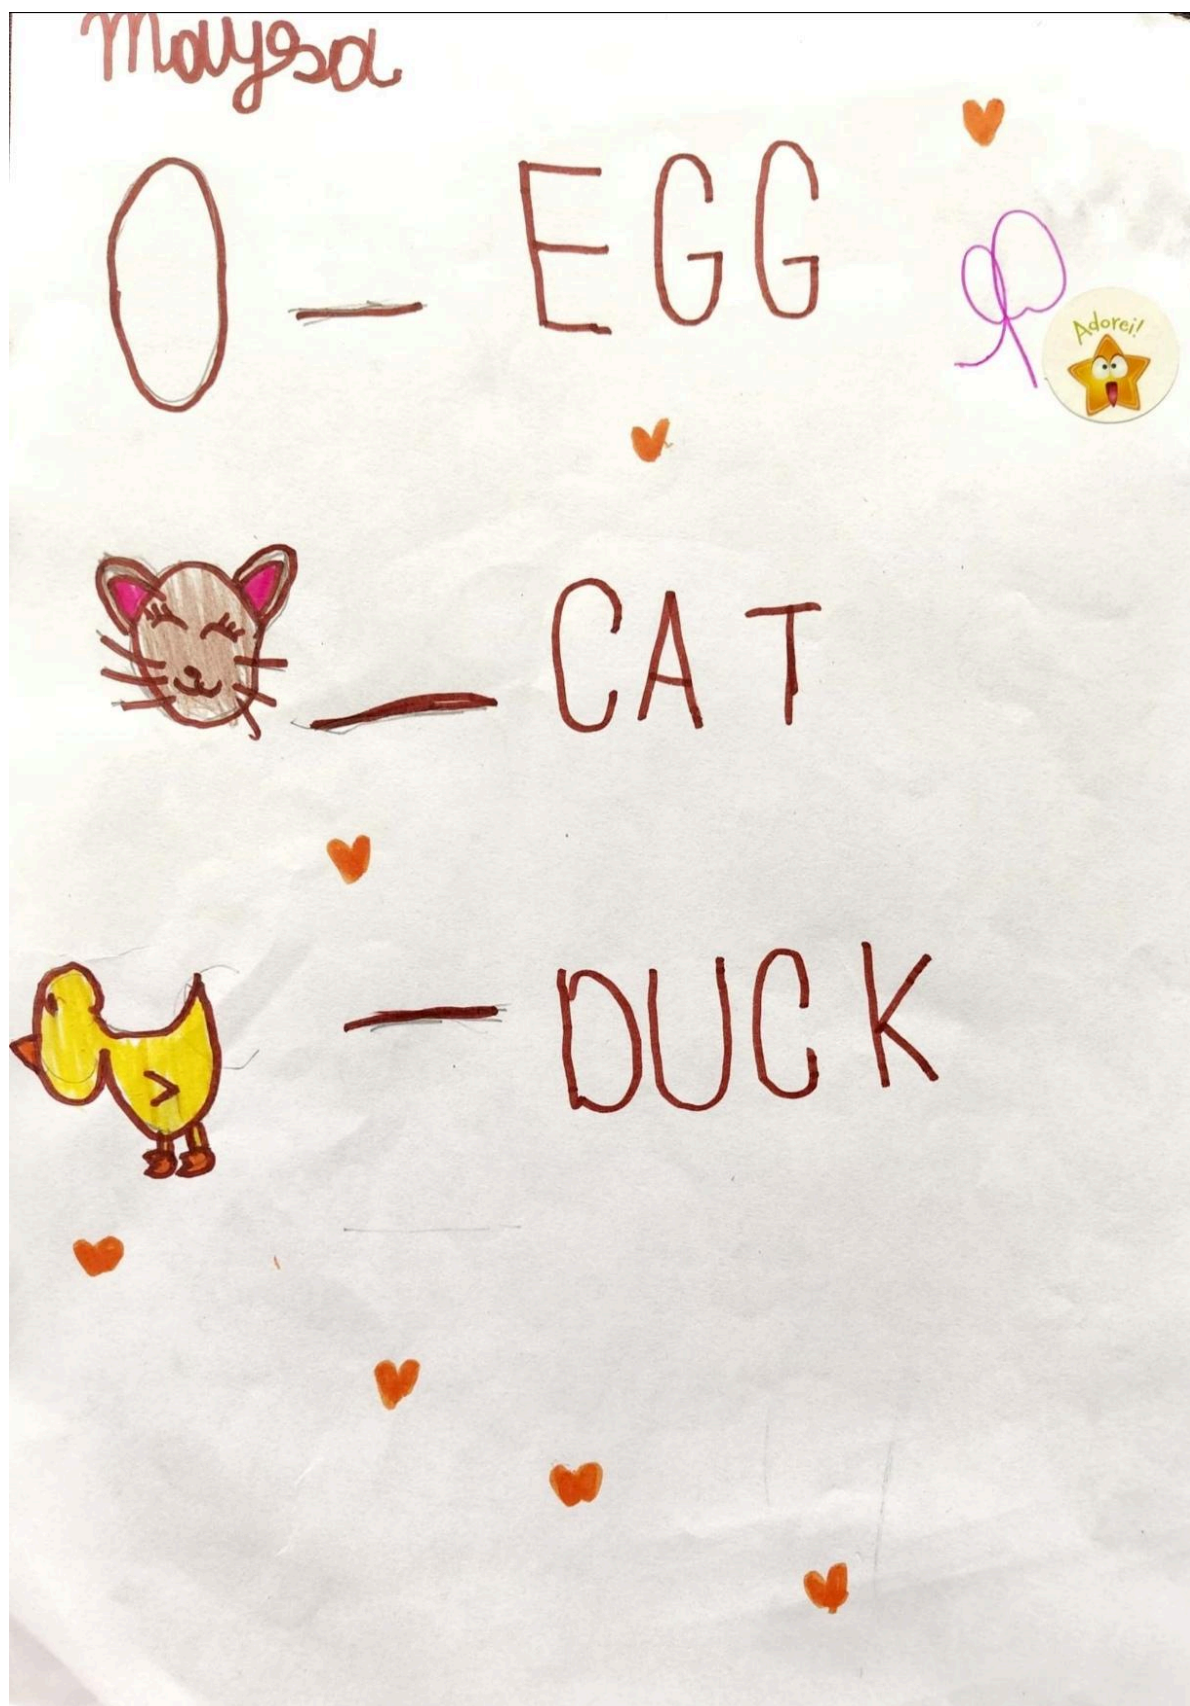 Maysa
— EGG
Adorei!
— CAT
— DUCK